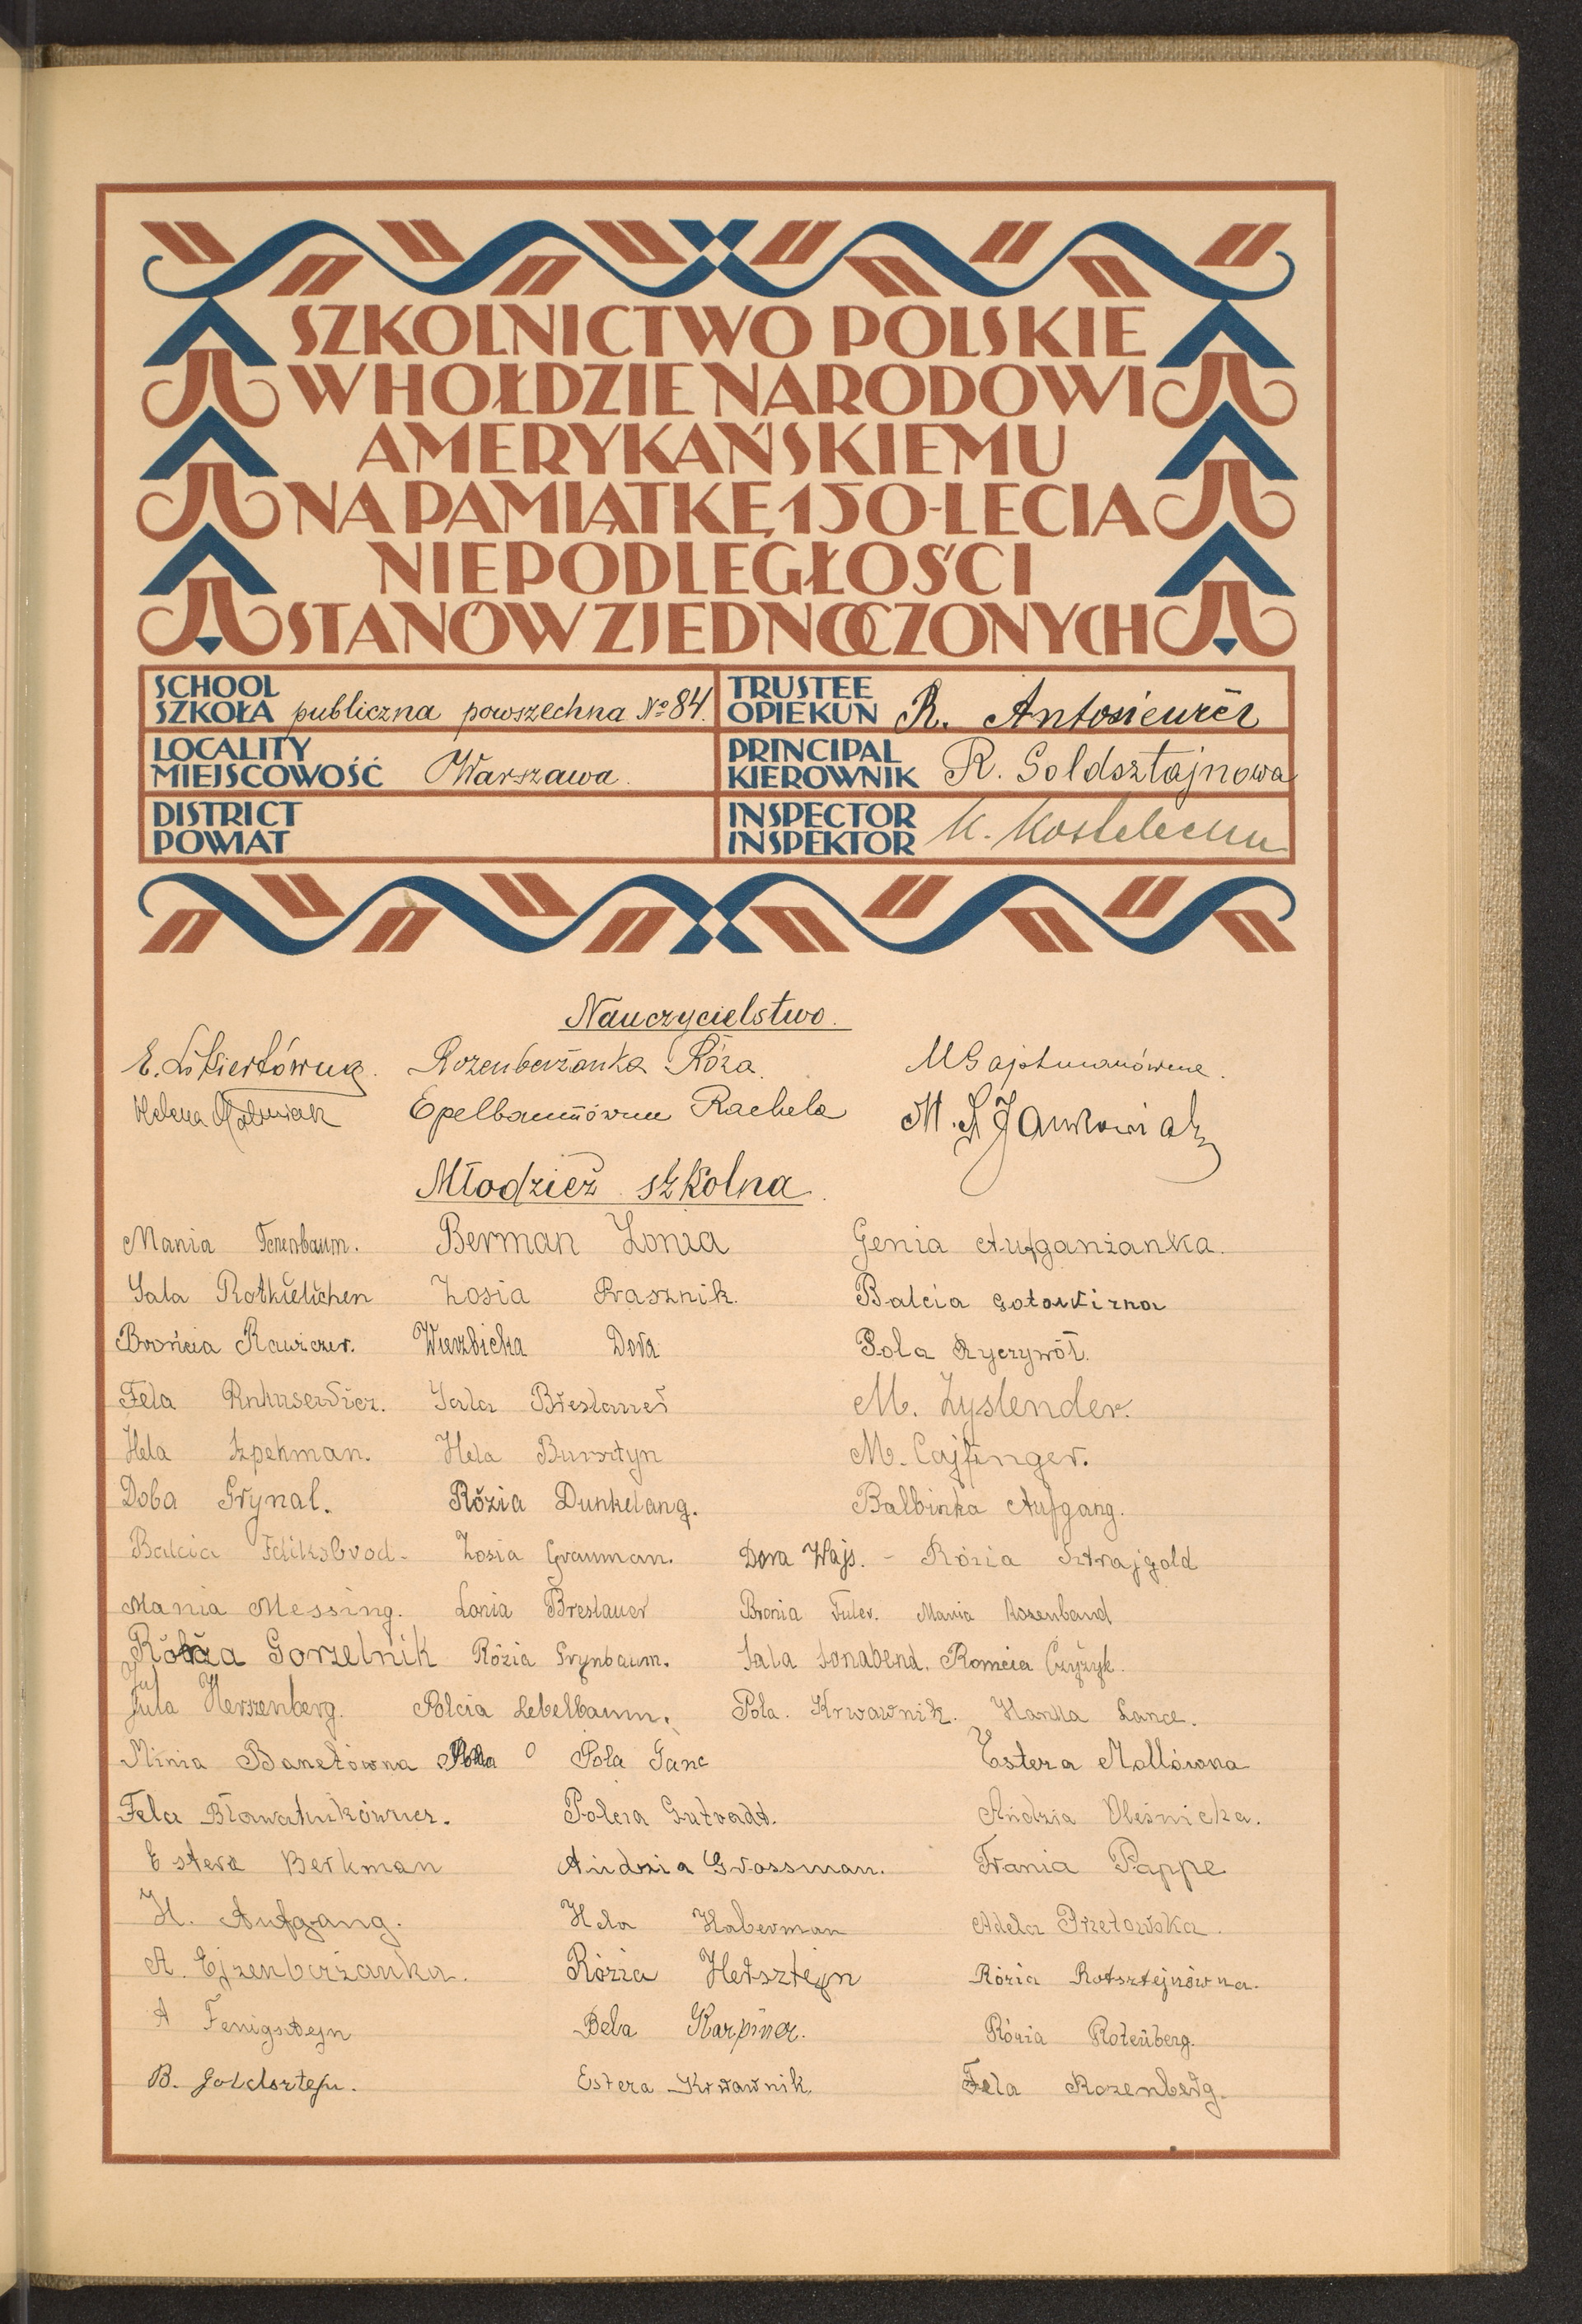 SZKOLNICTWO POLSKIE
W HOŁDZIE NARODOWI
AMERYKAŃSKIEMU
NA PAMIĄTKĘ 150-LECIA
NIEPODLEGŁOŚCI
STANÓW ZJEDNOCZONYCH
SCHOOL
SZKOŁA publiczna powszechna № 84.
TRUSTEE
OPIEKUN R. Antosiewicz
LOCALITY
MIEJSCOWOŚĆ Warszawa.
PRINCIPAL
KIEROWNIK R. Goldsztajnowa
DISTRICT
POWIAT
INSPECTOR
INSPEKTOR K.
Nauczycielstwo.
E. Likiertówna. Rozenberżanka Róża. M Gajtmanówna.
Helena Epelbaumówna Rachela M.
Młodzież szkolna.
Mania Tenenbaum. Berman Zonia Genia Aufganżanka.
Sala Rotkielichen Zosia Prasznik. Balcia
Brońcia Rawiczer. Wierzbicka Dora Pola Ryczywół.
Fela Sala Breslauer M. Zyslender.
Hela Szpekman. Hela Bursztyn M. Cajfinger.
Doba Grynal. Rózia Dunkelang. Balbinka Aufgang.
Balcia Fliksbrod. Zosia Grauman. Dora Wajs. - Rózia Sztrajgold
Mania Messing. Lonia Breslauer Bronia Futer. Mania Rozenband
Róża Gorzelnik Rózia Grynbaum. Sala Sonabend. Romcia Czyżyk.
Jula Herszenberg. Polcia Lebelbaum. Pola. Krwawnik. Hanka Lance.
Minia Banetówna Pola Ganc Estera Mollówna
Fela Bławatnikówna. Polcia Gutradt. Andzia Oleśnicka.
Estera Berkman Andzia Grossman. Frania Pappe
H. Aufgang. Hela Haberman Adela Przetowska.
A. Ejzenberżanka. Rózia Hetsztejn Rózia Rotsztejnówna.
A Fenigsztejn Bela Karpiner. Rózia Rotenberg.
B. Goldsztejn. Estera Krwawnik. Fela Rozenberg.